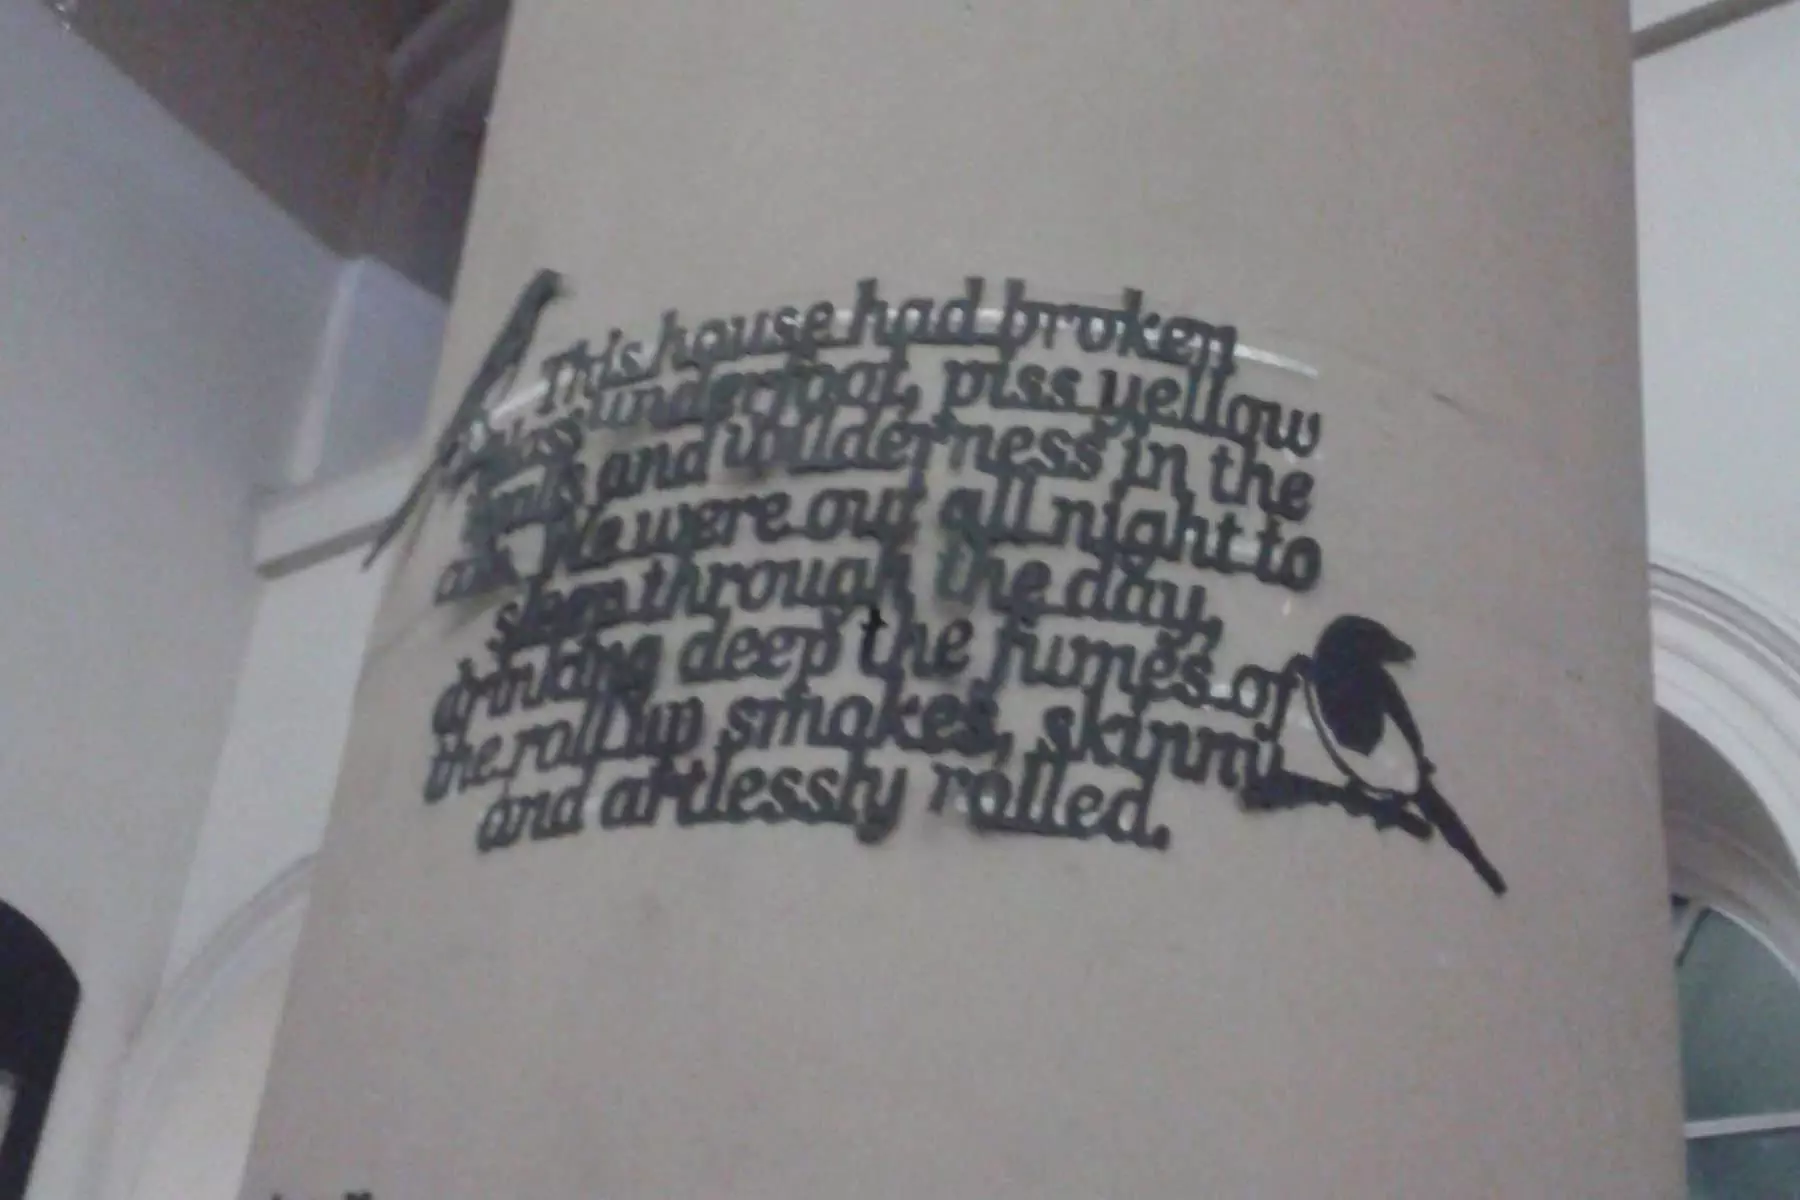 This house had broken
glass underfoot, piss yellow
walls and wilderness in the
air. We were out all night to
sleep through the day,
drinking deep the fumes of
the roll up smokes, skinny
and artlessly rolled.